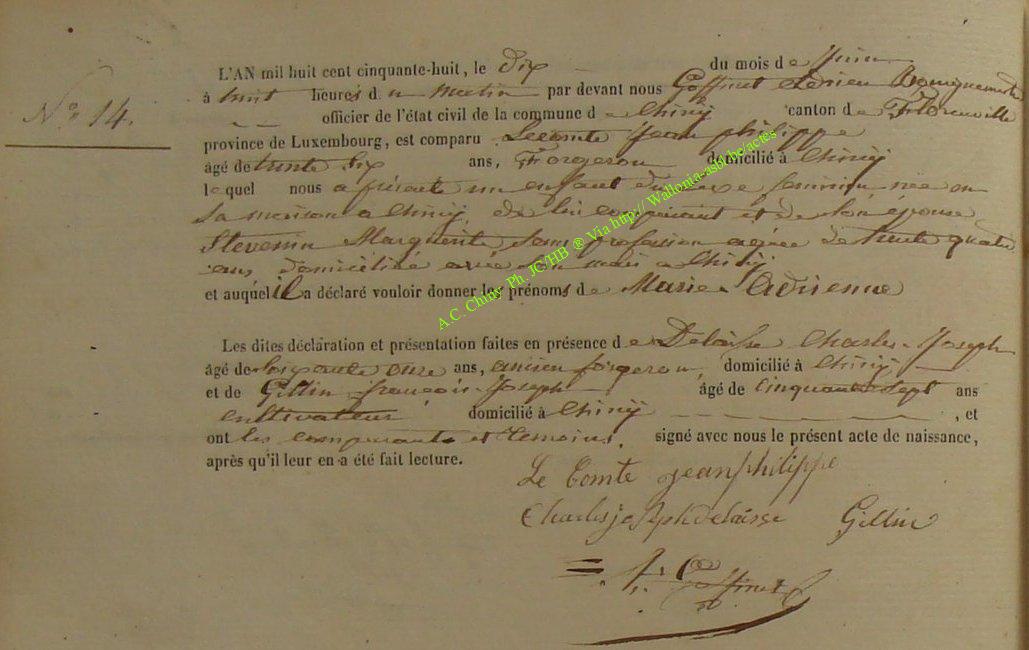 N.° 14.
L'AN mil huit cent cinquante-huit, le dix du mois de Juin
à huit heures du matin par devant nous Goffinet Adrien Bourguemestre
officier de l'état civil de la commune de Chiny canton de Florenville
province de Luxembourg, est comparu Lecomte Jean philippe
âgé de trente six ans, Forgeron domicilié à Chiny
lequel nous a présenté un enfant du sexe féminin née en
sa maison a Chiny, de lui comparant et de son épouse
Stevenin Marguerite sans profession agée de trente quatre
ans, domiciliée avec son mari a Chiny
et auquel il a déclaré vouloir donner les prénoms de Marie Adrienne
Les dites déclaration et présentation faites en présence de Delaisse Charles-Joseph
âgé de soixante onze ans, ancien forgeron, domicilié à Chiny
et de Gillin françois-Joseph âgé de cinquante sept ans
cultivateur domicilié à Chiny , et
ont les comparants et témoins, signé avec nous le présent acte de naissance,
après qu'il leur en a été fait lecture.
Le Comte jean philippe
Charles joseph delaisse Gillin
Goffinet
A.C. Chiny Ph. JC/HB ® Via http:// Wallonia-asbl.be/actes